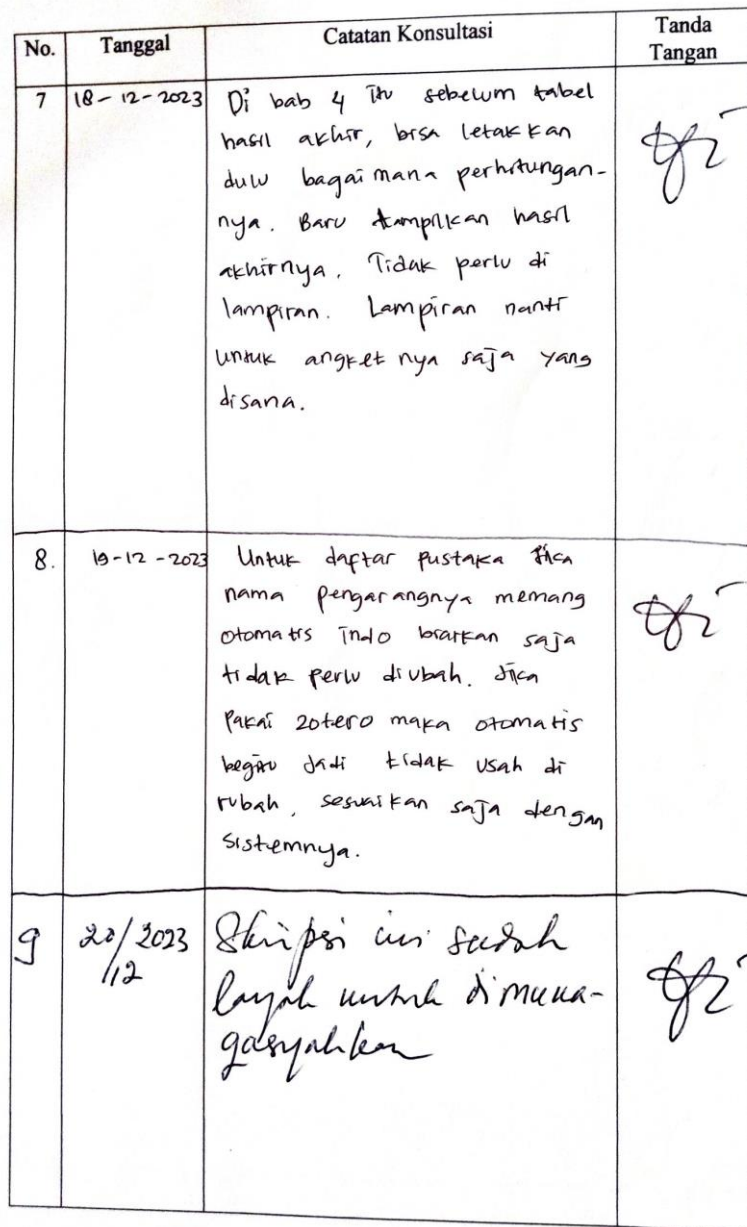 No. Tanggal Catatan Konsultasi Tanda Tangan
7 18-12-2023 Di bab 4 itu sebelum tabel
hasil akhir, bisa letakkan
dulu bagaimana perhitungan-
nya. Baru tampilkan hasil
akhirnya. Tidak perlu di
lampiran. Lampiran nanti
untuk angket nya saja yang
disana.
8. 19-12-2023 Untuk daftar pustaka Jika
nama pengarangnya memang
otomatis Indo biarkan saja
tidak perlu diubah. Jika
Pakai zotero maka otomatis
begitu Jadi tidak usah di
rubah, sesuaikan saja dengan
sistemnya.
9 20/12 2023 Skripsi ini sudah
layak untuk dimuna-
gasyahkan